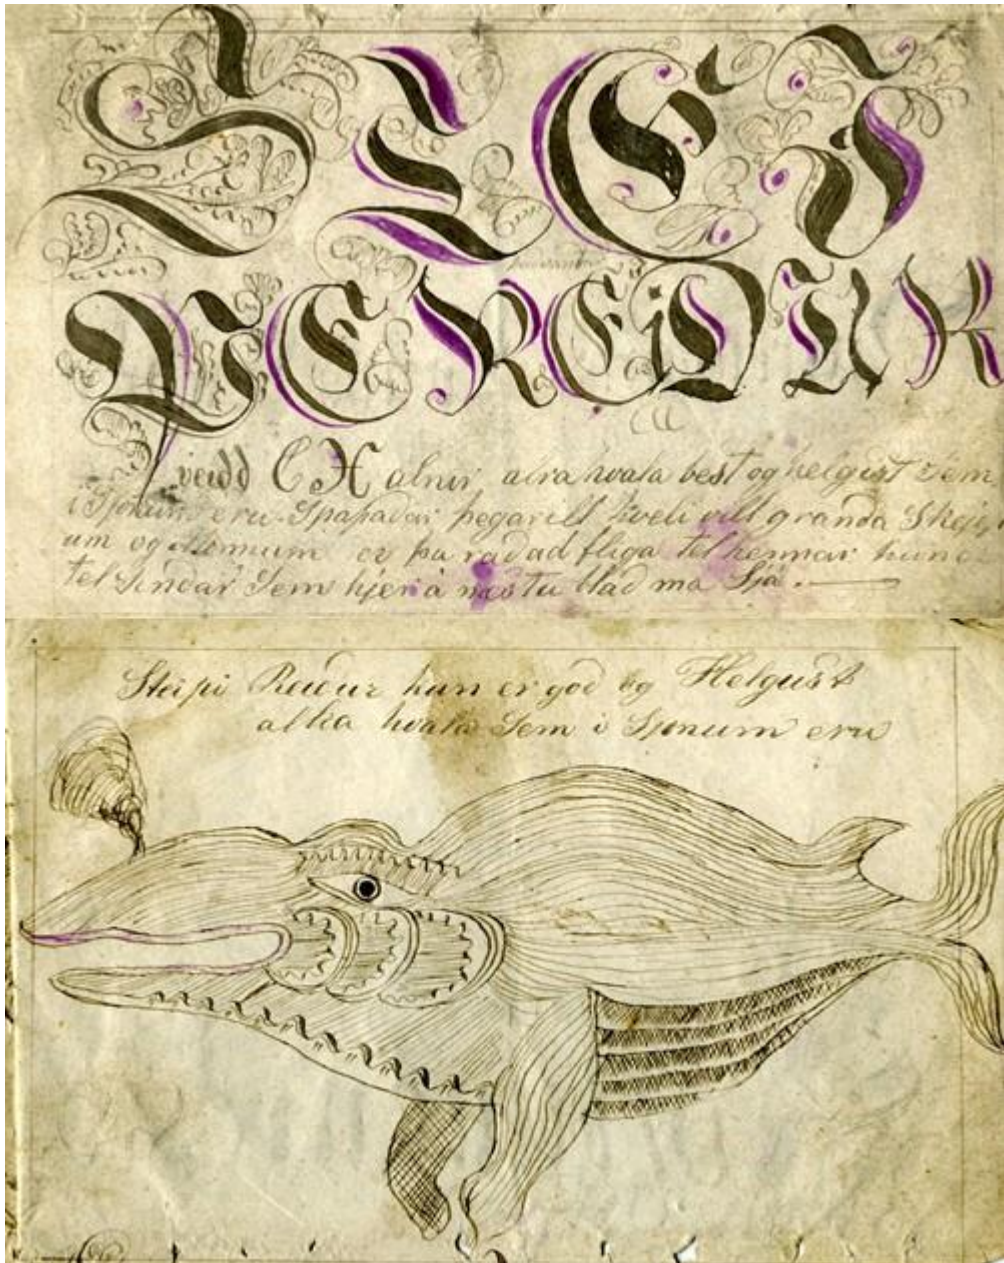 SLEI
VEREIDUR
veidd C H alnir alra hvala best og helgust Sem
i Sjonum eru. Spapadar þegar illt hveli vill granda Skeip
um og Monnum er þa rad ad fliga tel hennar hun er
tel Sindar Sem hjer a nastu blad ma Sjá.
Steipi Reidur hun er god og Helgust
allra hvala Sem i Sjonum eru